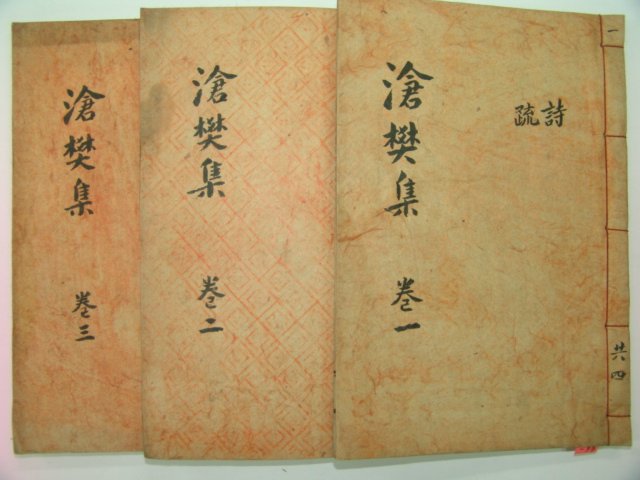 一
詩
疏
滄樊集
卷一
共四
滄樊集
卷二
滄樊集
卷三